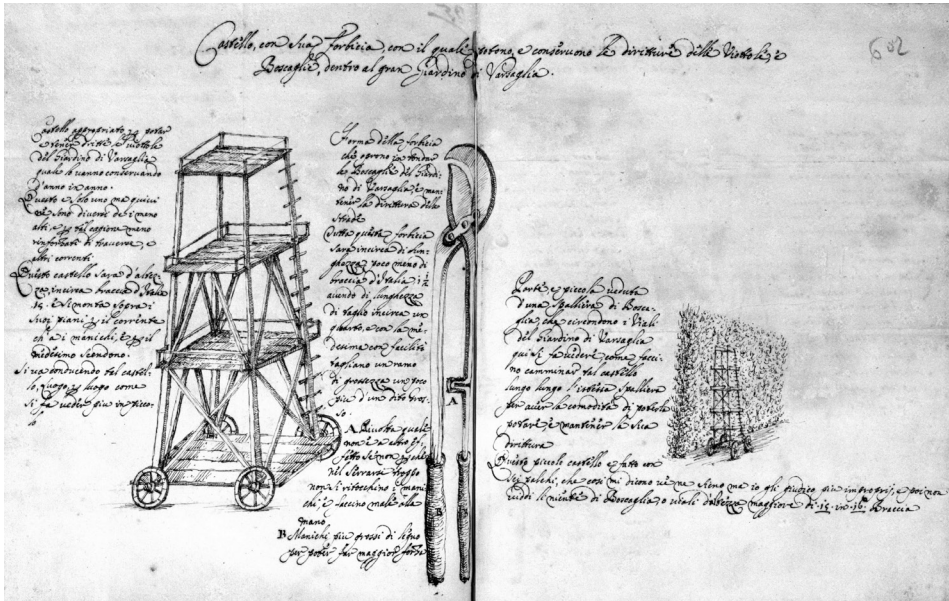 Castello, con sua forbicia, con il quale potono, e conseruono le diritture delle Viottole, e
Boscaglie, dentro al gran Giardino di Varsaglia.
602
Castello appropriato per potar
e tener diritte le viottole
del Giardino di Varsaglia
quale lo vanno conseruando
d'anno in anno.
Questo è solo uno ma quiui
ve sono diuersi de i meno
alti e per tal cagione meno
rinforzati di trauerse, e
altri correnti.
Questo castello sara d'altez-
za incirca braccia d'Italia
15. E si monta sopra i
suoi piani per il corrente
ch'a i manichi, e per il
medesimo scendono.
Si va conducendo tal castel-
lo, luogo, per luogo come
si fa veder piu in picco-
lo
Forma della forbicia
che oprono in tondar
le Boscaglie del Giardi-
no di Varsaglia, e man-
tener la dirittura delle
strade
Tutta questa forbicia
sara incirca di lun-
ghezza poco meno di
braccia d'Italia 1½
auendo di lunghezza
di taglio incirca un
quarto, e con la me-
desima con facilità
tagliano un ramo
di grossezza un poco
piu d'un dito gros-
so
A. Riuolta quale
non è a altro ef-
fetto se non per che
nel serrarsi troppo
non si ritochino i mani-
chi, e faccino male alla
mano.
B Manichi piu grossi di legno
per poter far maggior forza
A
B
Parte e piccola veduta
d'una spalliera di Bosca-
glia, che circondono i Viali
del Giardino di Varsaglia
qui si fa vedere come facci-
no camminar tal castello
lungo lungo l'istessa spalliera
per auer la comodità di poterla
potare, e mantener la sua
dirittura
Questo piccolo castello e fatto con
sei palchi, che cosi mi dicono ve ne sieno ma io gli giudico piu impropri, e poi non
viddi li niente di Boscaglia, o viali d'altezza maggiore di 15 in 16 Braccia